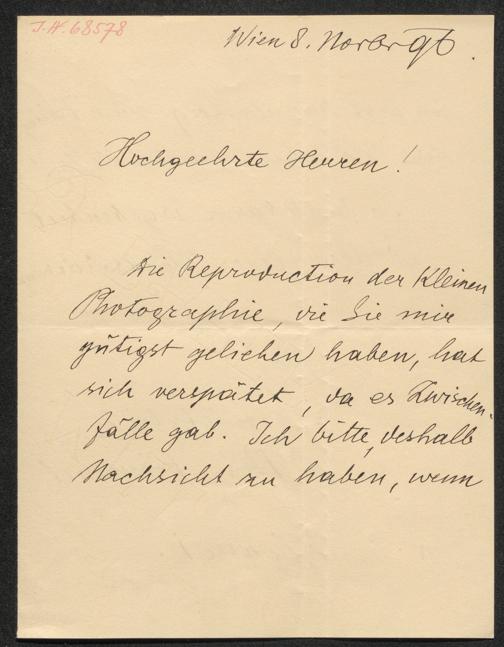 I.N. 68578
Wien 8. Novbr 96.
Hochgeehrte Herren!
Die Reproduction der kleinen
Photographie, die Sie mir
gütigst geliehen haben, hat
sich verspätet, da es Zwischen-
fälle gab. Ich bitte, deshalb
Nachsicht zu haben, wenn